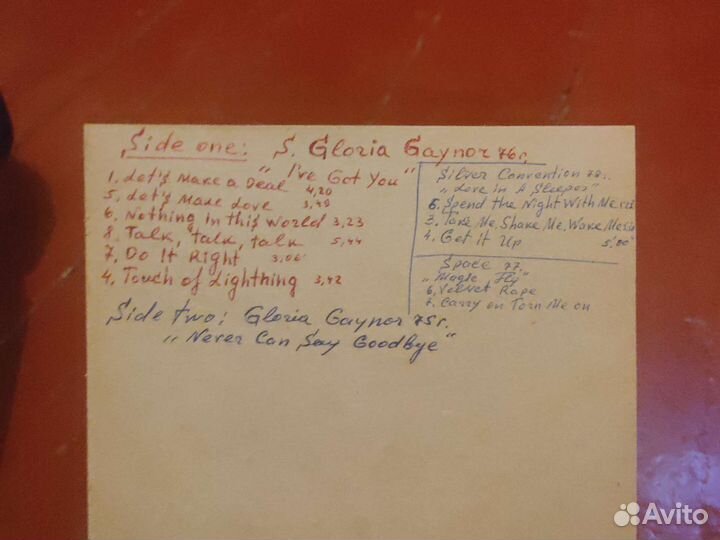 Side one: S. Gloria Gaynor 76г.
"I've Got You"
1. Let's Make a Deal 4,20
5. Let's Make Love 3,48
6. Nothing in this World 3,23
8. Talk, Talk, Talk 5,44
7. Do It Right 3,06
4. Touch of Lighthing 3,42
Silver Convention 78г.
"Love in A Sleeper"
6. Spend the Night With Me
3. Take Me, Shake Me, Wake Me
4. Get it Up 5,00
Space 77
"Magic Fly"
6. Velvet Rape
7. Carry on Torn Me on
Side two: Gloria Gaynor 75г.
"Never Can Say Goodbye"
Avito